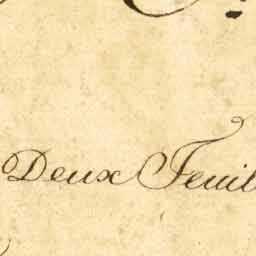 Deux Feuil